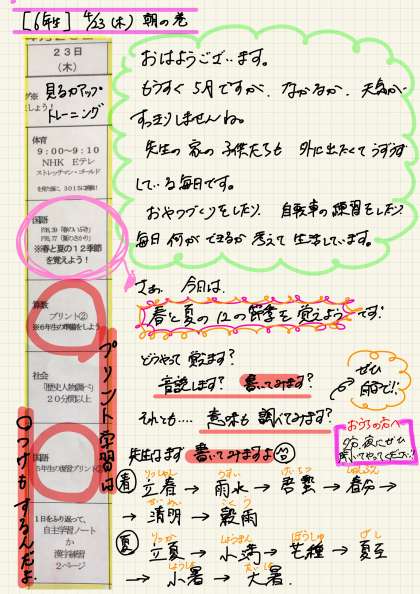 [6年生] 4/23(木) 朝の巻
23日
(木)
見る力アップ
トレーニング
体育
9:00〜9:10
NHK Eテレ
ストレッチマン・ゴールド
国語
※春と夏の12季節
を覚えよう!
算数
プリント②
※6年生の準備をしよう
社会
「歴史人物調べ」
20分間以上
国語
5年生の復習プリント②
1日をふり返って、
自主学習ノート
か
漢字練習
2ページ
プリント学習は
〇つけもするんだよ。
おはようございます。
もうすぐ5月ですが、なかなか、天気が
すっきりしませんね。
先生の家の子供たちも 外に出たくてうずうず
している毎日です。
おやつづくりをしたり 自転車の練習をしたり
毎日何ができるか考えて生活しています。
さあ、今日は、
春と夏の12の節季を覚えよう です!
どうやって覚えます?
音読します? 書いてみます?
それとも…. 意味も調べてみます?
先生はまず 書いてみますよ
おうちの方へ
夕方、夜にぜひ
聞いてやってください!
春 立春→雨水→啓蟄→春分→
りっしゅん うすい けいちつ しゅんぶん
→清明→穀雨
夏 立夏→小満→芒種→夏至
りっか しょうまん ぼうしゅ げし
→小暑→大暑.